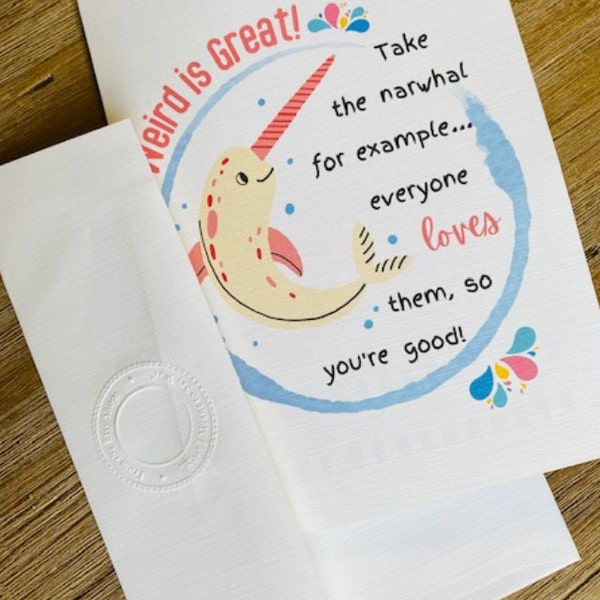 Weird is Great!
Take
the narwhal
for example...
everyone
loves
them, so
you're good!